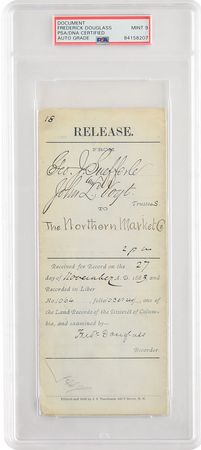 DOCUMENT
FREDERICK DOUGLASS
PSA/DNA CERTIFIED
AUTO GRADE
MINT 9
84158207
15
RELEASE.
FROM
Geo. J. Suefferle
John L. Vogt
Trustees
TO
The Northern Market Co
2 p m
Received for Record on the 27
day of November A.D. 1883, and
Recorded in Liber
No. 1064, folio et seq., one of
the Land Records of the District of Colum-
bia, and examined by
Fredk Douglass
Recorder.